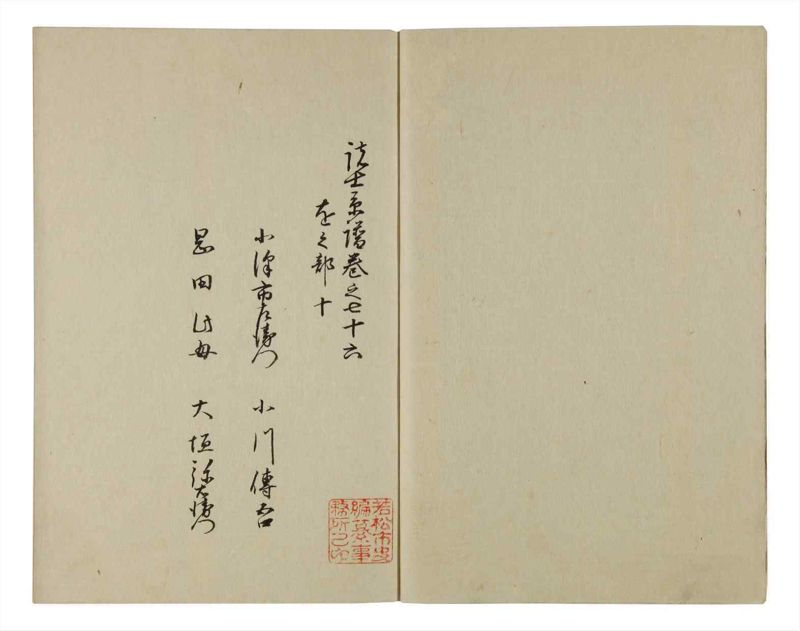 諸士系譜巻之七十六
を之部 十
小澤市左衛門 小川傳吾
岡田 大垣弥右衛門
若松市史
編纂事
務所之印